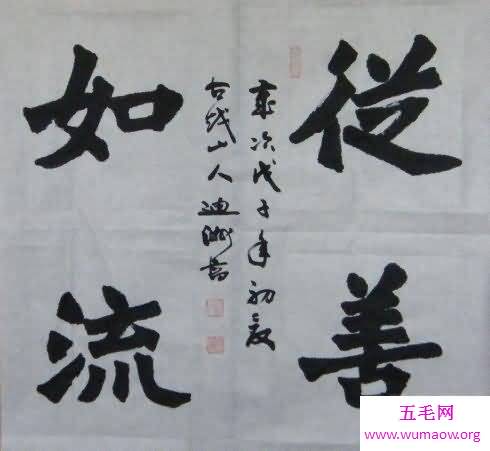 從善
如流
歲次戊子年初夏
古越山人迪書
五毛网
www.wumaow.org